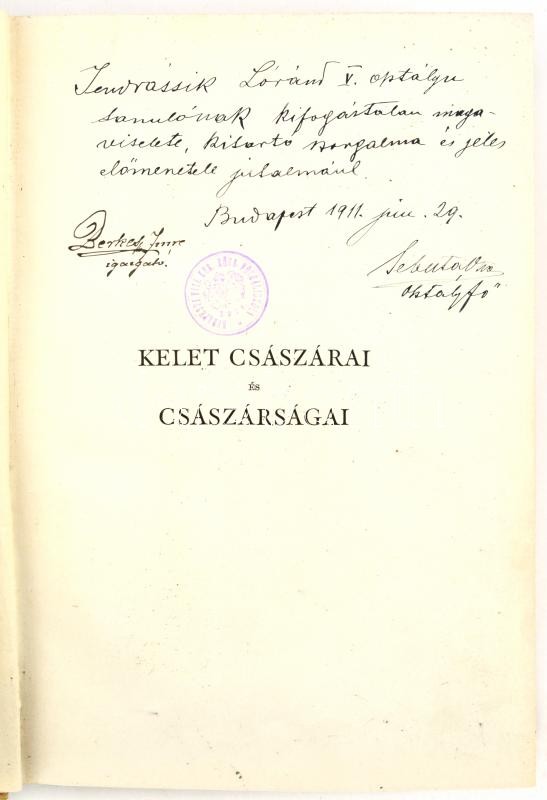 Jendrássik Lóránd V. osztályu
tanulónak kifogástalan maga-
viselete, kitartó szorgalma és jeles
előmenetele jutalmául.
Budapest 1911. jun. 29.
Berkes Imre
igazgató.
osztályfő
KELET CSÁSZÁRAI
ÉS
CSÁSZÁRSÁGAI